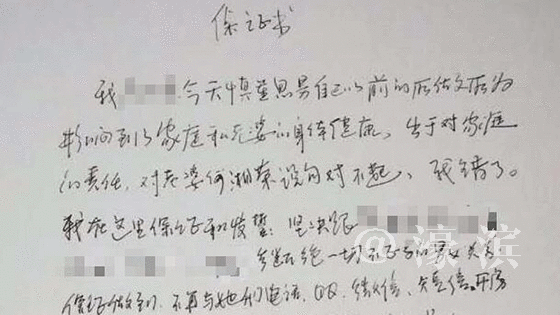 保证书
我 今天慎重思易自己以前的所做文所为
影响到了家庭和老婆的身体健康，出于对家庭
的责任，对老婆何湘荣说句对不起，我错了。
我在这里保证和发誓：坚决跟
断绝一切不正当的男女关
保证做到，不再与她们电话、QQ、微信、短信、开房
@濠滨